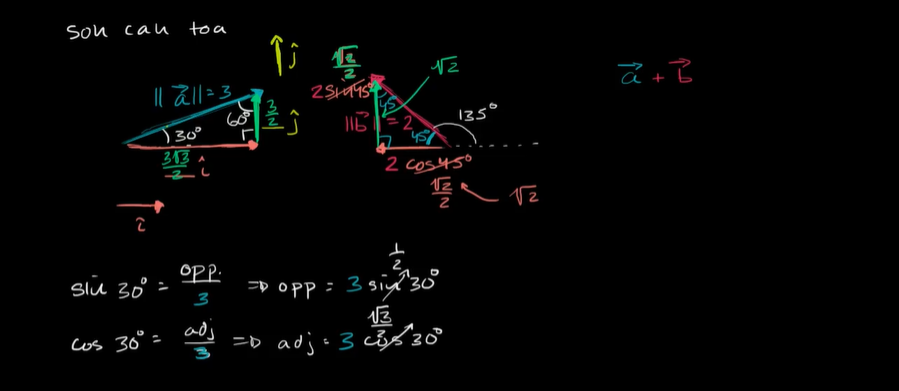 son can toa
ĵ
||a⃗|| = 3
30°
60°
3/2 ĵ
3√3/2 î
î
√2/2
2 sin 45°
√2
45°
||b⃗|| = 2
45°
135°
2 cos 45°
√2/2
√2
a⃗ + b⃗
sin 30° = opp./3 ⇒ opp = 3 sin 30°
1/2
cos 30° = adj/3 ⇒ adj = 3 cos 30°
√3/2